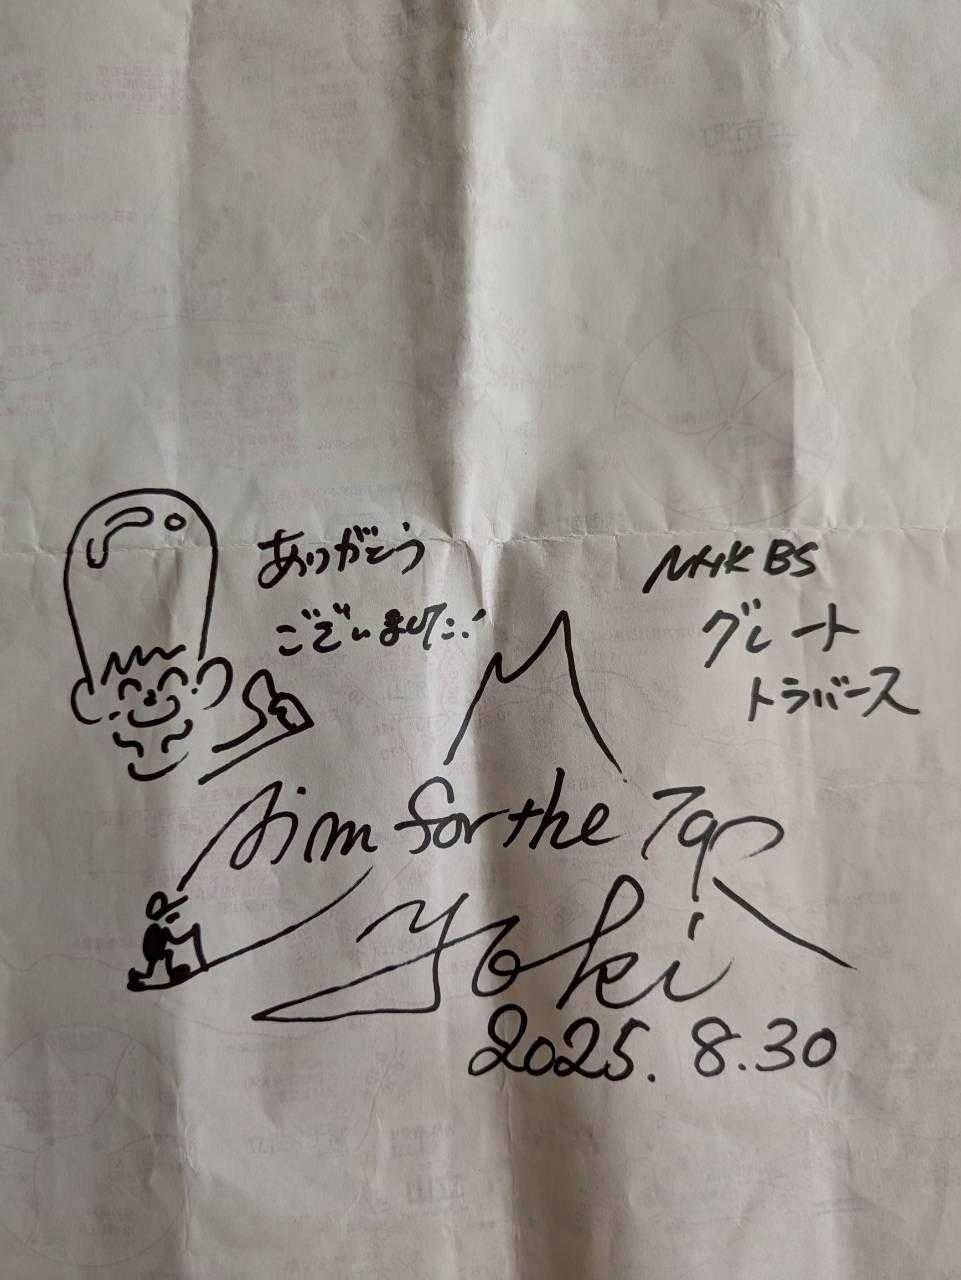 ありがとう
ございました!!
NHK BS
グレート
トラバース
Aim for the Top
Yoki
2025. 8.30